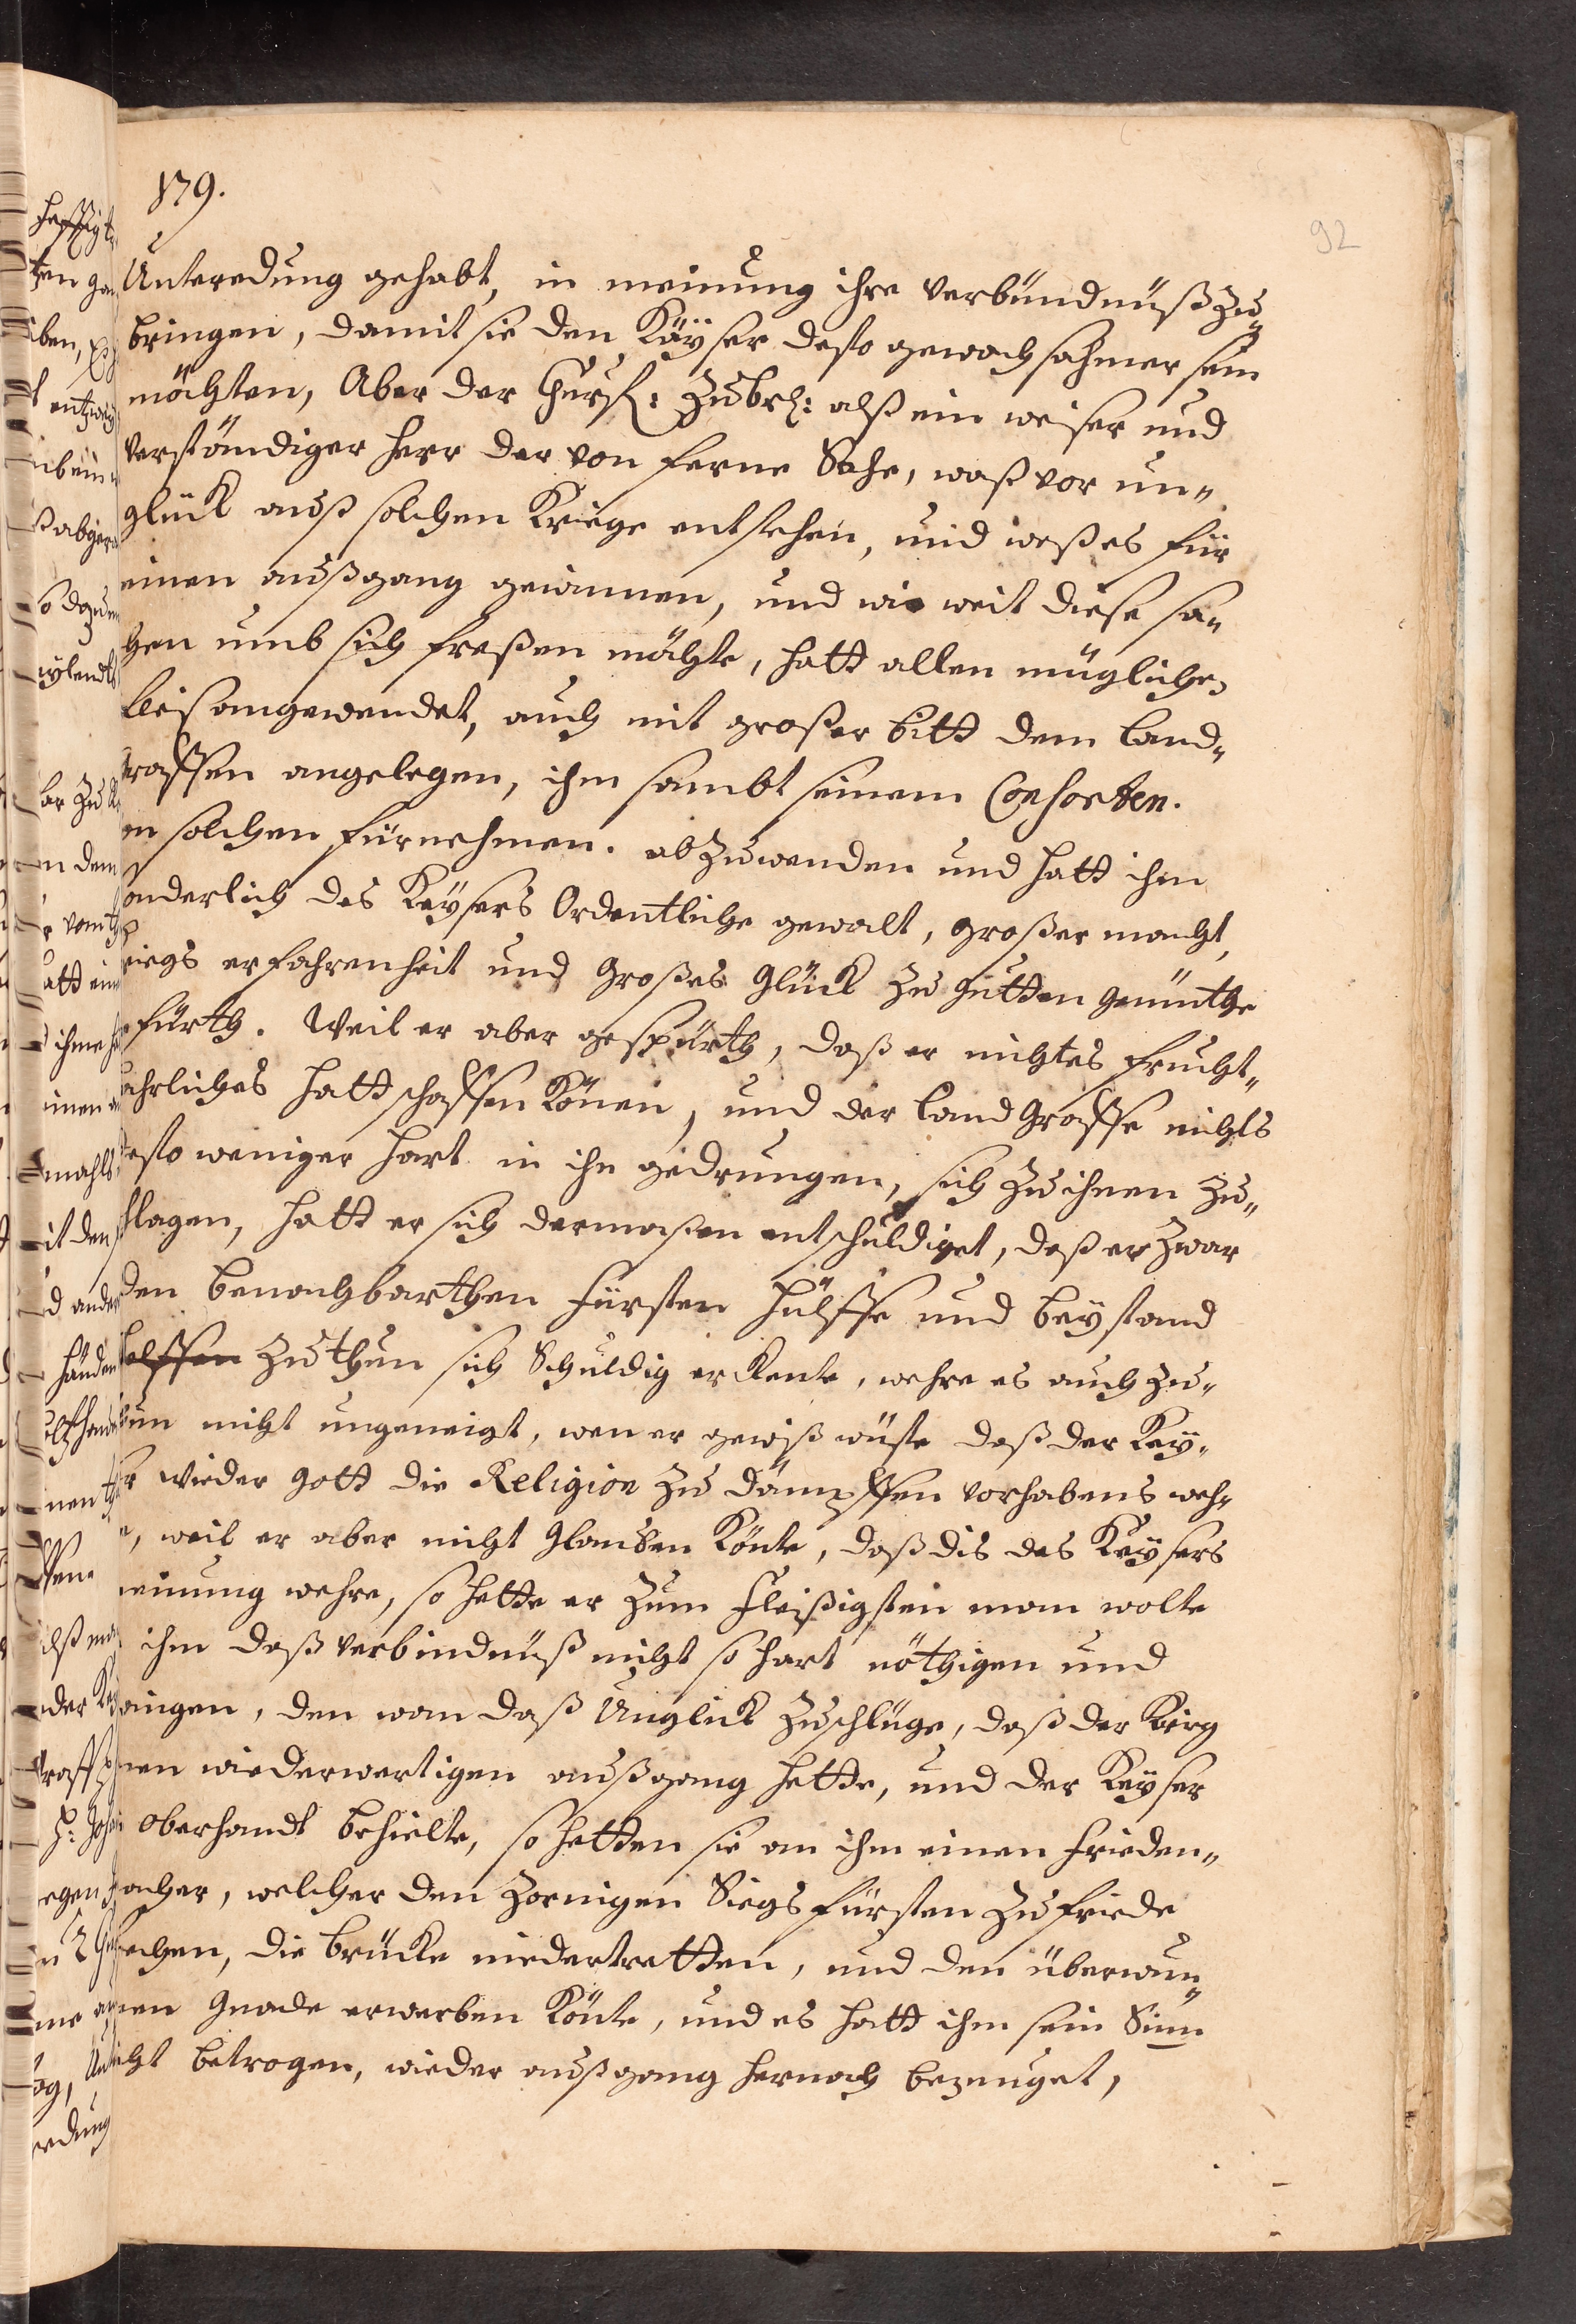 179.
92
Unteredung gehabt, in meinung ihre verbündnüß zu„
bringen, damit sie den Käyser desto gewachsahmer sein
möchten, Aber der Churf: Zu br: alß ein weiser und
verständiger Herr der von ferne Sahe, waß vor un„
glück auß solchen Kriege entstehen, und waß es für
einen außgang gewinnen, und wie weit diese sa„
chen umb sich freßen möchte, hatt allen müglichen
fleis angewendet, auch mit großer bitt dem Land„
graffen angelegen, ihm sambt seinem Consorten.
on solchen fürnehmen. abzuwenden und hatt ihm
sonderlich des Keysers Ordentliche gewalt, großer macht,
Kriegs erfahrenheit und Großes Glück zu gutten gemüthe
eführth. Weil er aber gespürth, daß er nichtes frucht„
bahrliches hatt schaffen Könen, und der Land Graffe nichts
desto weniger hart in ihn gedrungen, sich zu ihnen zu„
schlagen, hatt er sich dermaßen entschuldiget, daß er zwar
den benachbarthen fürsten hülffe und beystand
helffen zu thun sich Schuldig erkente, wehre es auch zu„
thun nicht ungeneigt, wen er gewiß wüste daß der Key„
ser wieder Gott die Religion zu dämpffen vorhabens weh„
re, weil er aber nicht Glauben Könte, daß dis des Keysers
meinung wehre, so hette er zum fleißigsten man wolte
ihm daß verbindnüß nicht so hart nöthigen und
zwingen, den wan daß Unglück zuschlüge, daß der Krig
einen wiederwertigen außgang hette, und der Keyser
die Oberhandt behielte, so hetten sie an ihm einen frieden„
macher, welcher den zornigen Siegs fürsten zu friede
sprechen, die brücke niedertretten, und den überwun„
denen Gnade erwerben Könte, und es hatt ihm sein Sinn
nicht betrogen, wie der außgang hernach bezeuget,